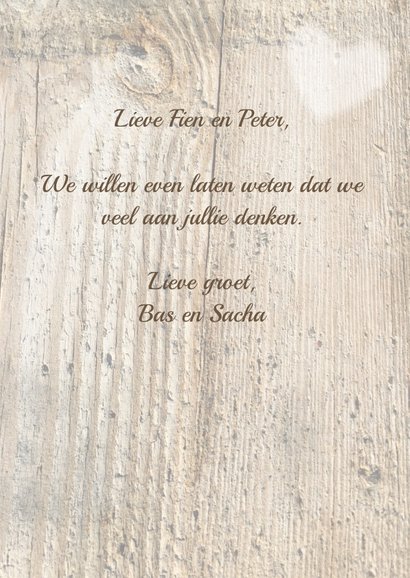 Lieve Fien en Peter,
We willen even laten weten dat we
veel aan jullie denken.
Lieve groet,
Bas en Sacha